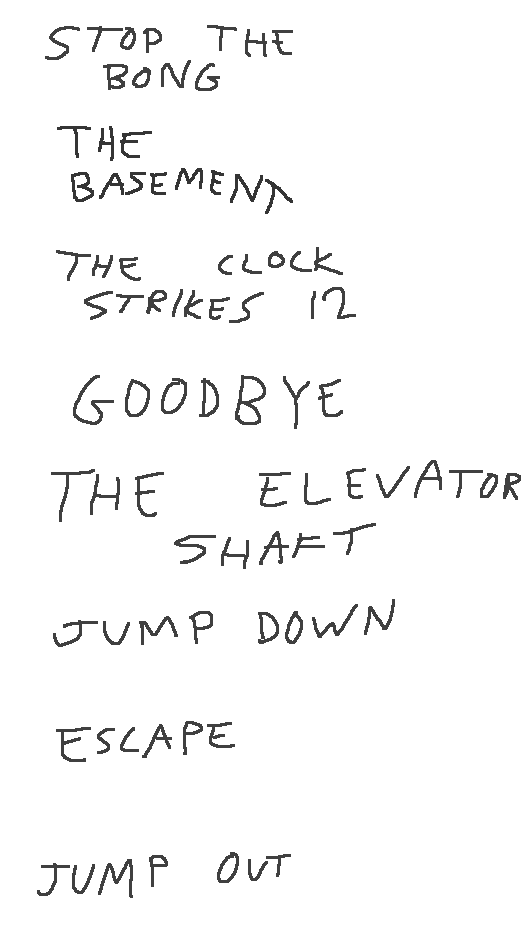 STOP THE
BONG
THE
BASEMENT
THE CLOCK
STRIKES 12
GOODBYE
THE ELEVATOR
SHAFT
JUMP DOWN
ESCAPE
JUMP OUT